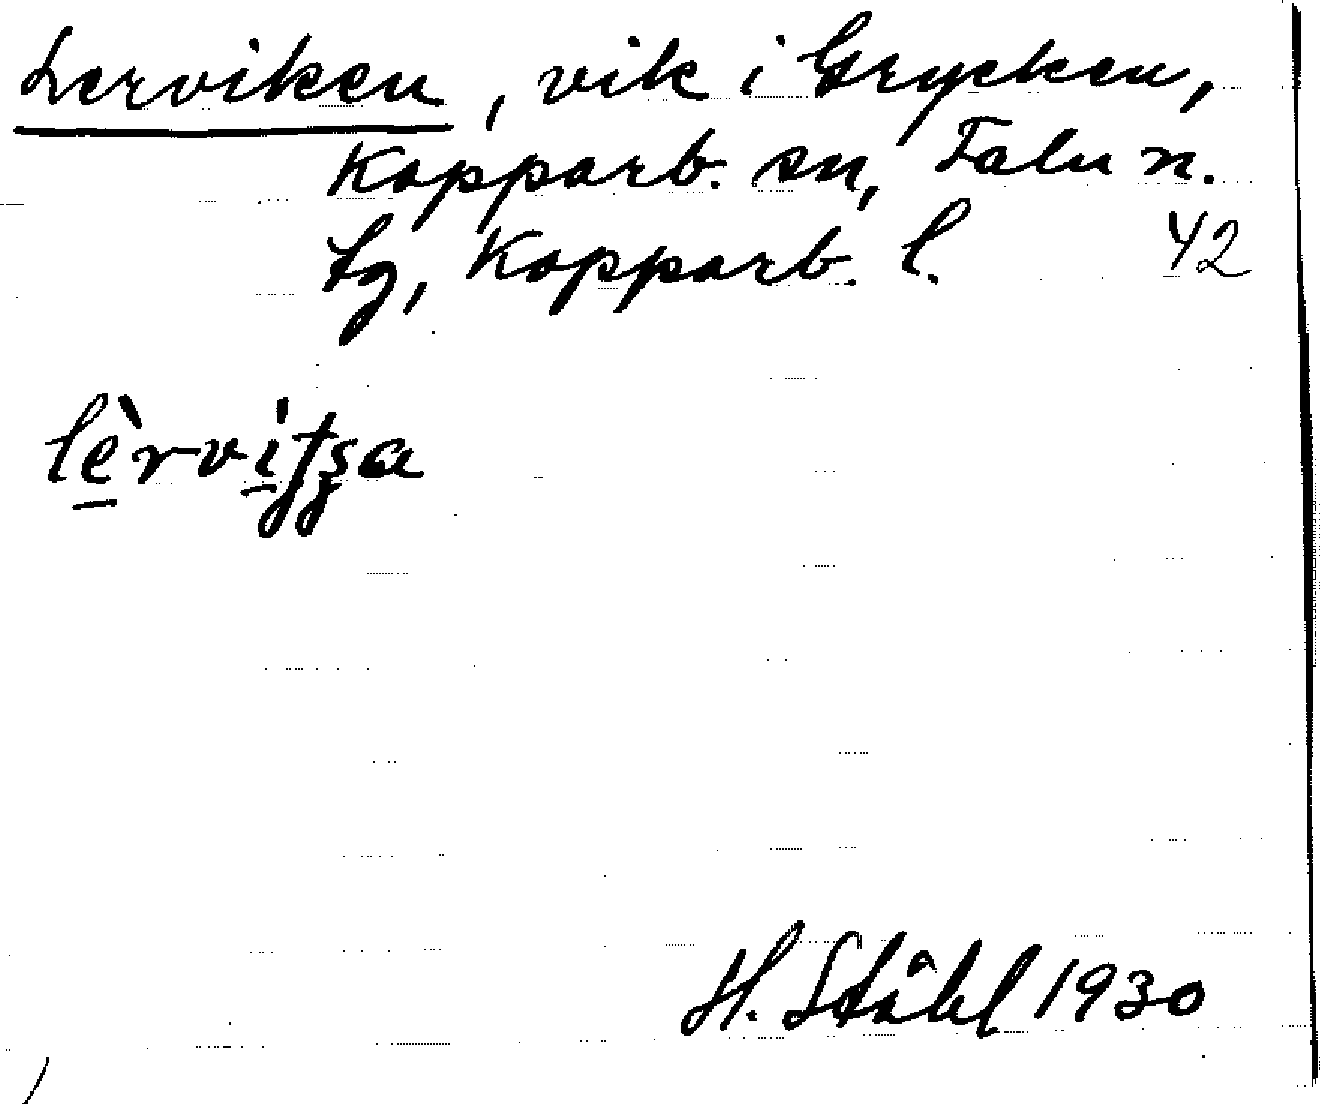 Lerviken, vik i Grycken,
Kopparb. sn, Falu n.
tg, Kopparb. l. 42
H. Ståhl 1930